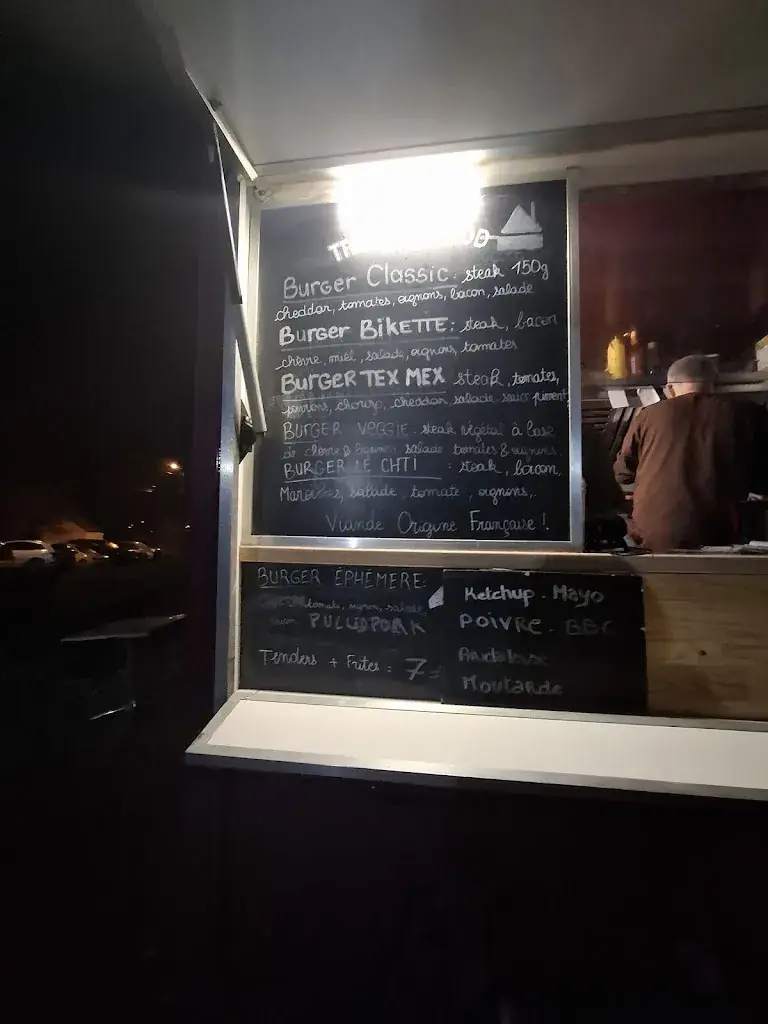 Burger Classic: steak 150g
cheddar, tomates, oignons, bacon, salade
Burger BIKETTE: steak, bacon
chèvre, miel, salade, oignons, tomates
BURGER TEX MEX steak, tomates,
poivrons, chorizo, cheddar salade sauce piment
BURGER VEGGIE. steak végétal à base
de salade tomates & oignons
BURGER LE CHTI : steak, bacon,
Maroilles, salade, tomate, oignons,
Viande Origine Française!
BURGER ÉPHÉMÈRE:
tomate, oignon, salade
PULLEDPORK
Tenders + Frites: 7
Ketchup. Mayo
POIVRE. BBC
Andalouse
Moutarde